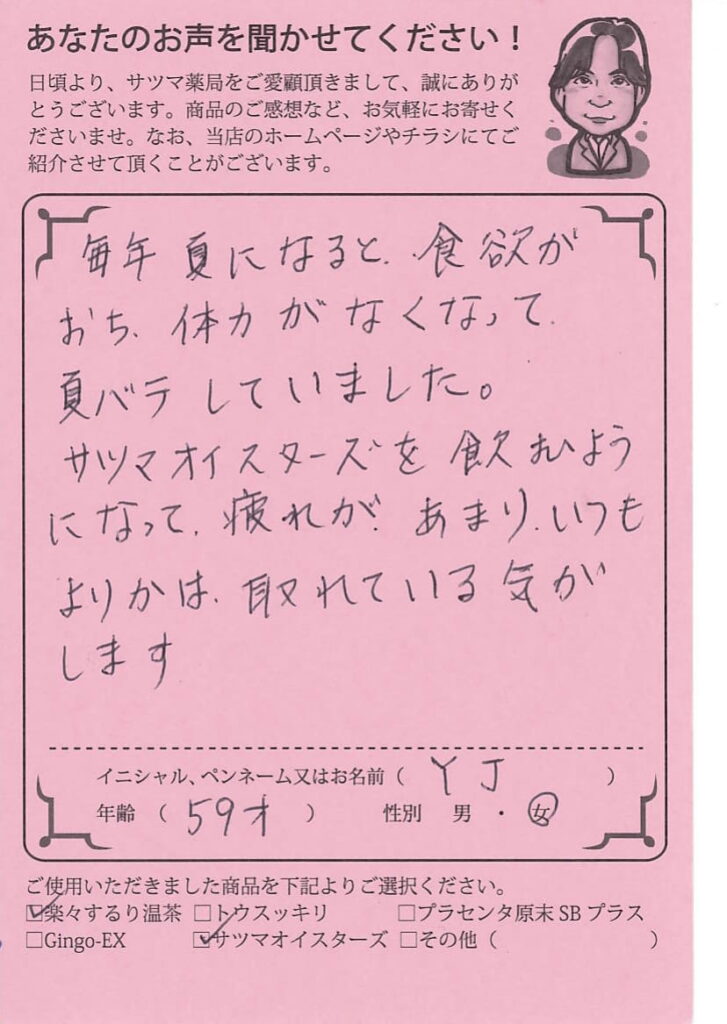 あなたのお声を聞かせてください！
日頃より、サツマ薬局をご愛顧頂きまして、誠にありが
とうございます。商品のご感想など、お気軽にお寄せく
ださいませ。なお、当店のホームページやチラシにてご
紹介させて頂くことがございます。
毎年 夏になると、食欲が
おち、体力がなくなって
夏バテしていました。
サツマオイスターズを飲むよう
になって、疲れが、あまり、いつも
よりかは、取れている気が
します
イニシャル、ペンネーム又はお名前（ YJ ）
年齢 （ 59才 ） 性別 男 ・ 女
ご使用いただきました商品を下記よりご選択ください。
☑楽々するり温茶 □トウスッキリ □プラセンタ原末SBプラス
□Gingo-EX ☑サツマオイスターズ □その他（ ）